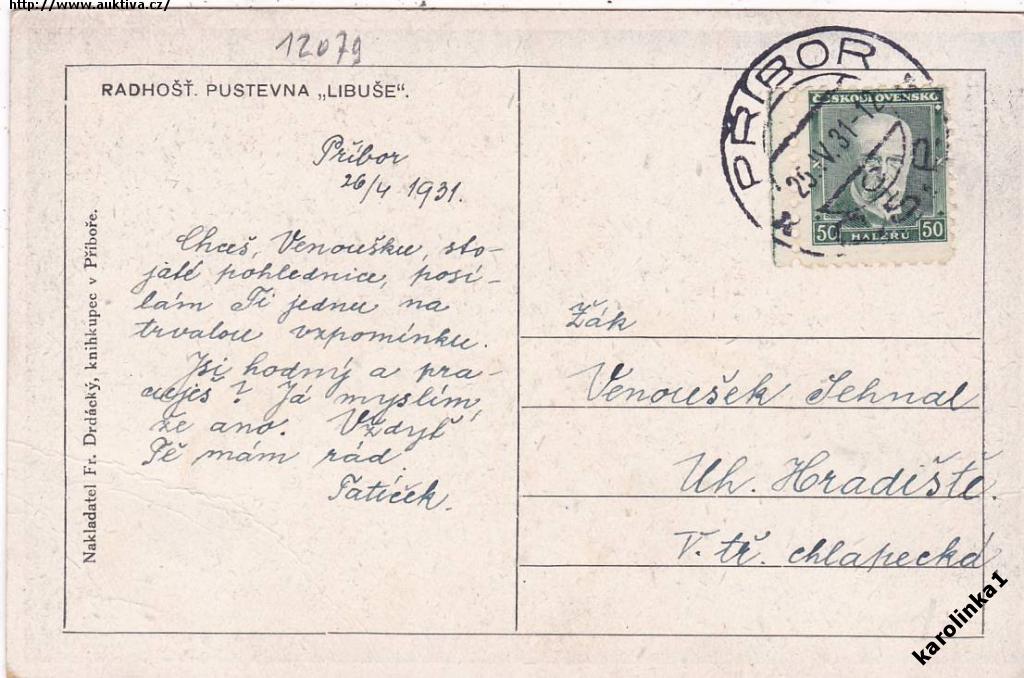 http://www.auktiva.cz/
12079
RADHOŠŤ. PUSTEVNA „LIBUŠE“.
Příbor
26/4 1931.
Chceš, Venoušku, sto-
jaté pohlednice, posí-
lám Ti jednu na
trvalou vzpomínku.
Jsi hodný a pra-
cuješ? Já myslím,
že ano. Vždyť
Tě mám rád
Tatíček.
Nakladatel Fr. Drdácký, knihkupec v Příboře.
PŘÍBOR
ČESKOSLOVENSKO
50 HALÉŘŮ 50
Žák
Venoušek Sehnal
Uh. Hradiště.
V. tř. chlapecká
karolinka1